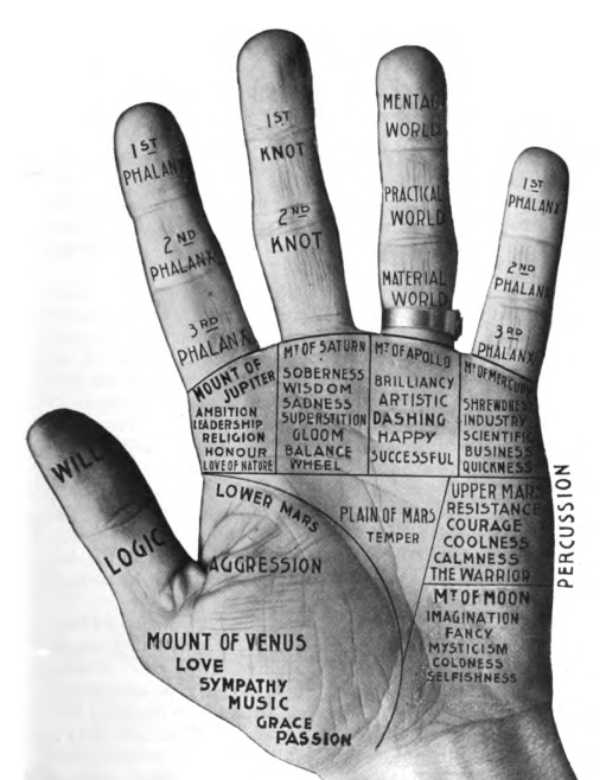 1ST
PHALANX
2ND
PHALANX
3RD
PHALANX
1ST
KNOT
2ND
KNOT
MENTAL
WORLD
PRACTICAL
WORLD
MATERIAL
WORLD
1ST
PHALANX
2ND
PHALANX
3RD
PHALANX
MOUNT OF
JUPITER
AMBITION
LEADERSHIP
RELIGION
HONOUR
LOVE OF NATURE
MT OF SATURN
SOBERNESS
WISDOM
SADNESS
SUPERSTITION
GLOOM
BALANCE
WHEEL
MT OF APOLLO
BRILLIANCY
ARTISTIC
DASHING
HAPPY
SUCCESSFUL
MT OF MERCURY
SHREWDNESS
INDUSTRY
SCIENTIFIC
BUSINESS
QUICKNESS
WILL
LOGIC
LOWER MARS
AGGRESSION
PLAIN OF MARS
TEMPER
UPPER MARS
RESISTANCE
COURAGE
COOLNESS
CALMNESS
THE WARRIOR
PERCUSSION
MT OF MOON
IMAGINATION
FANCY
MYSTICISM
COLDNESS
SELFISHNESS
MOUNT OF VENUS
LOVE
SYMPATHY
MUSIC
GRACE
PASSION